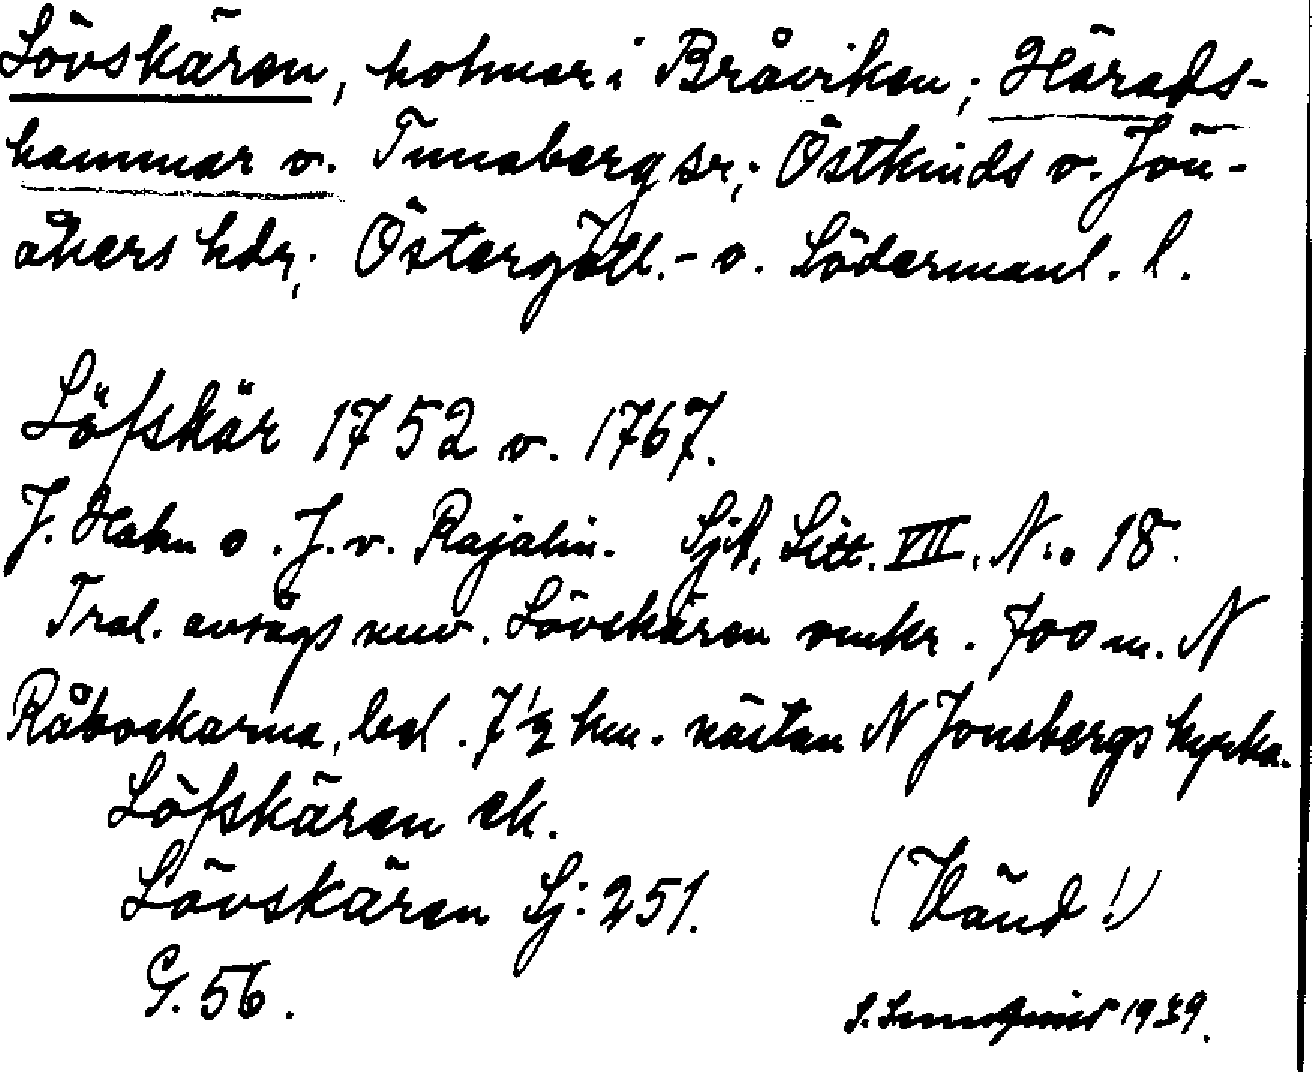 Lövskären, holmar i Bråviken; Härads-
hammar o. Tunaberg sr; Östkinds o. Jön-
åkers hdr; Östergötl.- o. Södermanl. l.
Löfskär 1752 o. 1767.
J. Hahn o. J. v. Rajalin. Sjk, Litt. VII. N:o 18.
Trol. avsågs nuv. Lövskären omkr. 700 m. N
Råbockarna, bel. 7 1/2 km. nästan N Jonsbergs kyrka.
Löfskären ek.
Lövskären Sj: 251.
G. 56.
(Vänd!)
S. 1939.